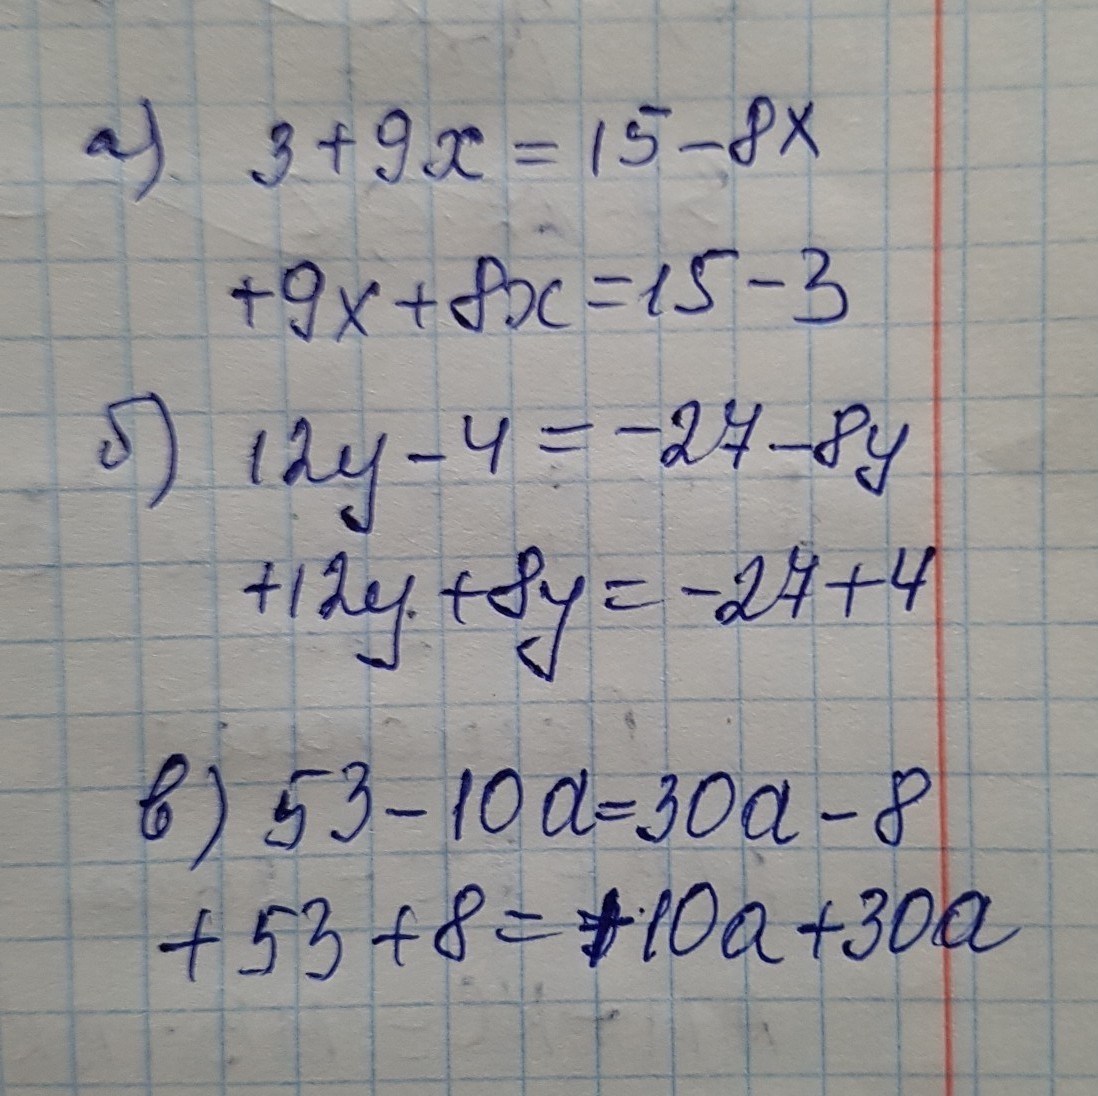 а) 3+9x=15-8x
+9x+8x=15-3
б) 12y-4=-27-8y
+12y+8y=-27+4
в) 53-10a=30a-8
+53+8=+10a+30a